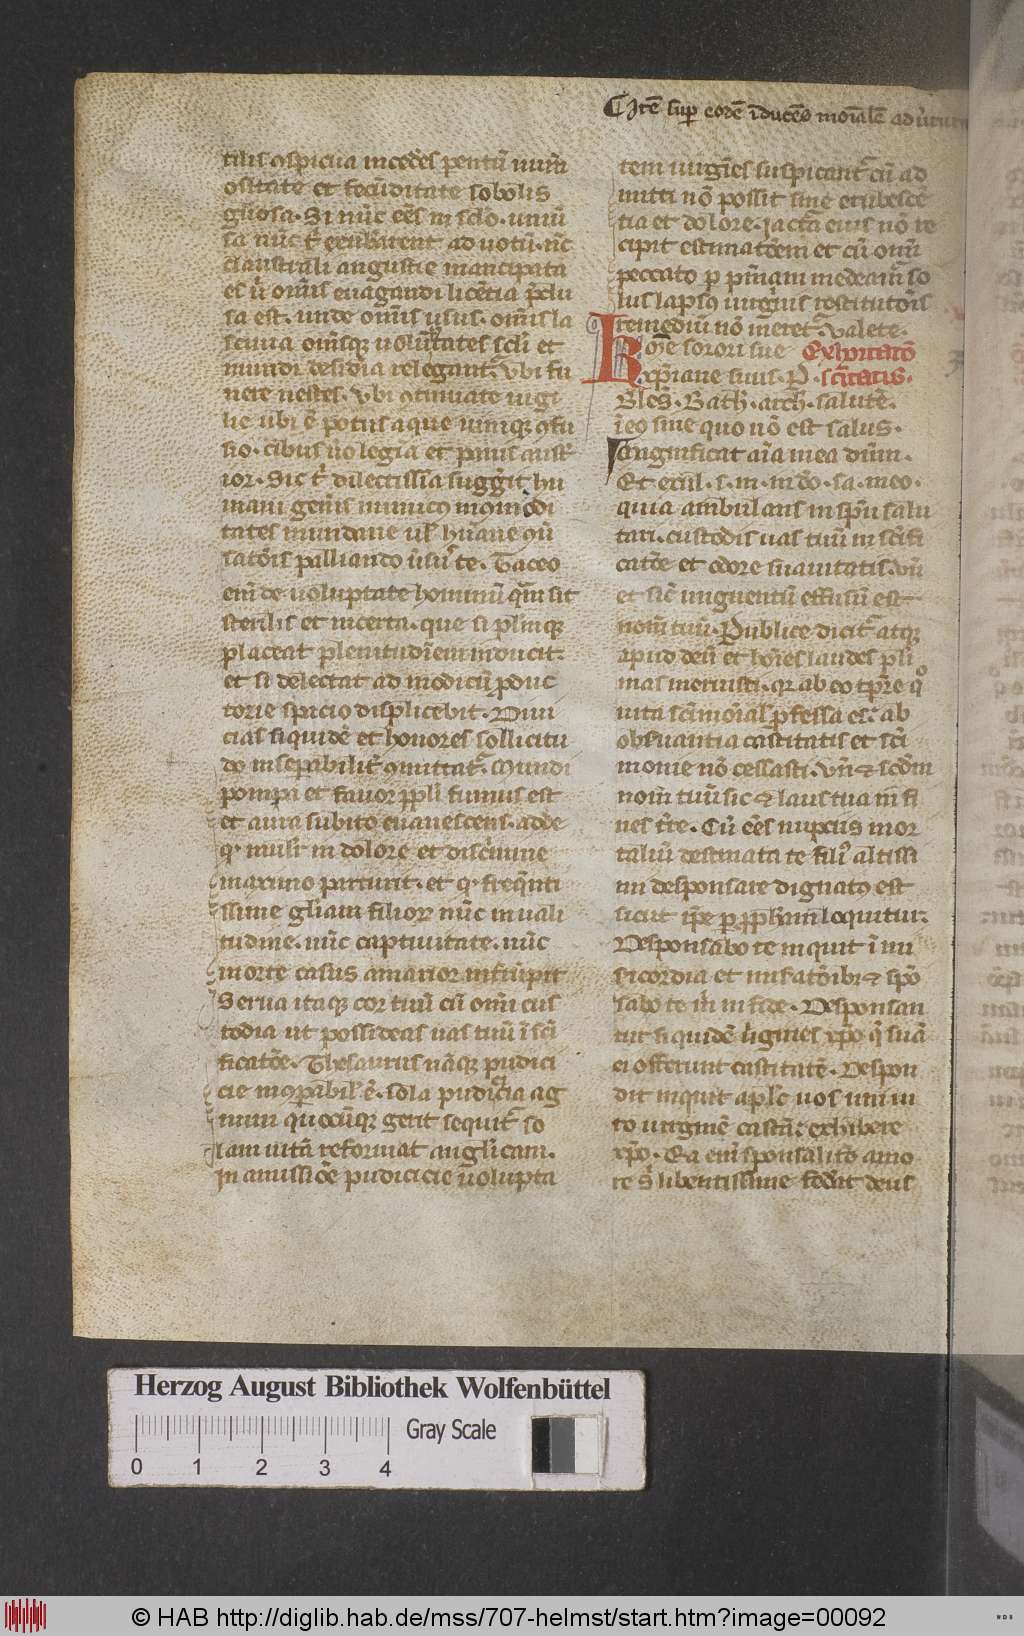 Itē suꝑ eodē īducēs moīalē ad v̓tutē
tilis ꝯspicua incedēs pentū num̄
ositate et fecūditate sobolis
gl̓iosa. Si nūc eēs in sclo. uniū
sa nūc t̓ exubarent ad uotū. nc̄
claustrali angustie mancipata
es ⁊ om̄is euagandi licētia p̄clu
sa est. unde om̄is usus. om̄is la
sciuia om̄isqꝫ uolūtates scl̓i et
mundi desidia relegant̓. vbi fu
nere uestes. vbi ꝯtinuate uigi
lie ubi ē potus aque uiniqꝫ ꝯfu
sio. cibus u̓o legia et panis aust̓
ior. Sic t̓ dilectissīa sugg̓it hu
mani gen̓is inimicꝰ inꝯmodi
tates mundane uel hūane ꝯu̓
satōis palliando u̓su te. Taceo
enī de uoluptate hominū q̄m sit
sterilis et incerta. que si pl̓inqꝫ
placeat plenitudinem inducit.
et si delectat ad modicū ꝓduc
torie spacio displicebit. Diui
cias siquidē et honores sollicitu
do insepabilit̓ ꝯmittat̓. Mundi
pompa et fauor pp̄li fumus est
et aura subito euanescens. adde
qꝫ mulr̄ in dolore et disc̓mine
maximo parturit. et qꝫ freq̄nti
ssime gl̓iam filioꝝ nūc in uali
tudine. nūc captiuitate. nūc
morte casus amarior int̓rūpit
Serua itaqꝫ cor tuū cū om̄i cus
todia ut possideas uas tuū ī sc̄i
ficatōe. Thesaurus nāqꝫ pudici
cie inꝯparabil̓ ē. sola pudicicia ag
num quocūqꝫ ierit sequit̓ so
lam uitā reformat anglicam.
In amissiōe pudicicie uolupta
tem uirgīes suspicant̓ cū ad
mitti nō possit sine erubescē
tia et dolore. jactā eius nō re
cipit estimatōem et cū omī
peccato ꝑ pīnam medeant̓ so
lus lapsꝰ uirgīnis restitutōis
remediū nō meret̓. Valete.
Rose sorori sue Exhortatō
xp̄iane suus. P. sc̄itatis.
Bles. Bath̓. arch̓. salutē.
ī eo sine quo nō est salus.
Magnificat aīa mea dn̄m.
Et exul̓. s. m. in dō. sa. meo.
quia ambulans in sp̄u salu
tari. custodis uas tuū in sc̄ifi
catōe et odore suauitatis. vn̄
et sic̄ unguentū effusū est
nom̄ tuū. Publice dicit̓ atqꝫ
apud deū et hoīes laudes p̄li
mas meruisti. qꝛ ab eo tp̄re qo
uita sc̄imoīal̓ ꝓfessa es. ab
obs̓uantia castitatis et sc̄i
monie nō cessasti. vn̄ ⁊ scd̄m
nom̄ tuū sic ⁊ laus tua in fi
nes t̓re. Cū eēs nupciis mor
taliū destinata te filiꝰ altissi
mi desponsare dignatꝰ est
sicut ip̄e ꝑ ꝓph̄am loquitur.
Desponsabo te inquit ī mi
sicordia et mis̓atōibꝫ ⁊ spō
sabo te m̄ in fide. Desponsan
tur siquidē u̓gines xp̄o q̄ suā
ei offerunt castitatē. Despon
dit inquit apl̓c uos uni ui
ro uirginē castā. exhibere
xp̄o. Ea enī sponsalitō amo
re s̄ libentissime federat deus
Herzog August Bibliothek Wolfenbüttel
0 1 2 3 4 Gray Scale
© HAB http://diglib.hab.de/mss/707-helmst/start.htm?image=00092